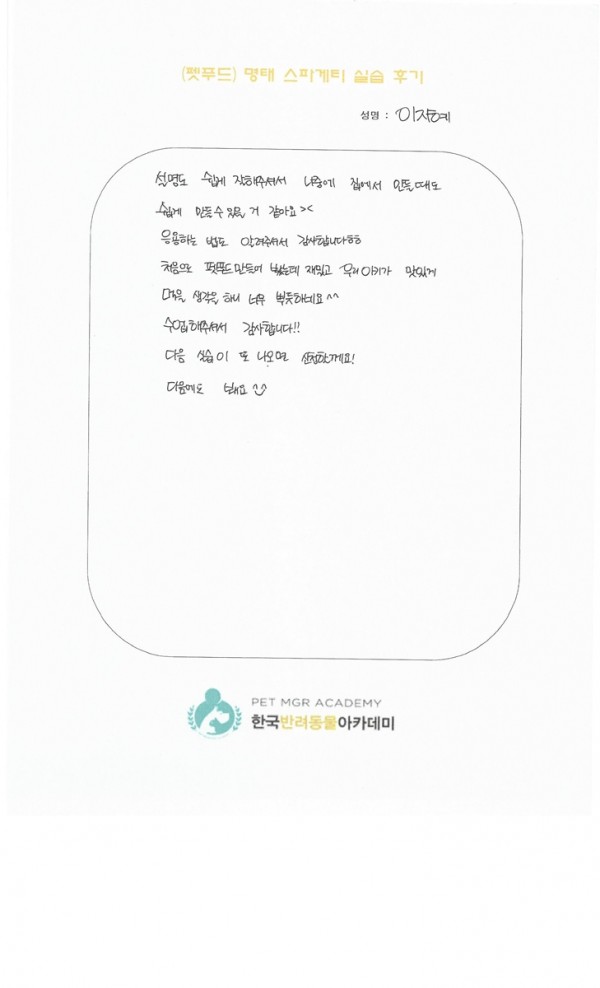 (펫푸드) 명태 스파게티 실습 후기
성명 : 이지혜
설명도 쉽게 잘해주셔서 나중에 집에서 만들때도
쉽게 만들수 있을 거 같아요 ><
응용하는 법도 알려주셔서 감사합니다ㅎㅎ
처음으로 펫푸드만들어 봤는데 재밌고 우리 아키가 맛있게
먹을 생각을 하니 너무 뿌듯하네요 ^^
수업해주셔서 감사합니다!!
다음 실습이 또 나오면 신청할게요!
다음에도 봬요 ^^
PET MGR ACADEMY
한국반려동물아카데미